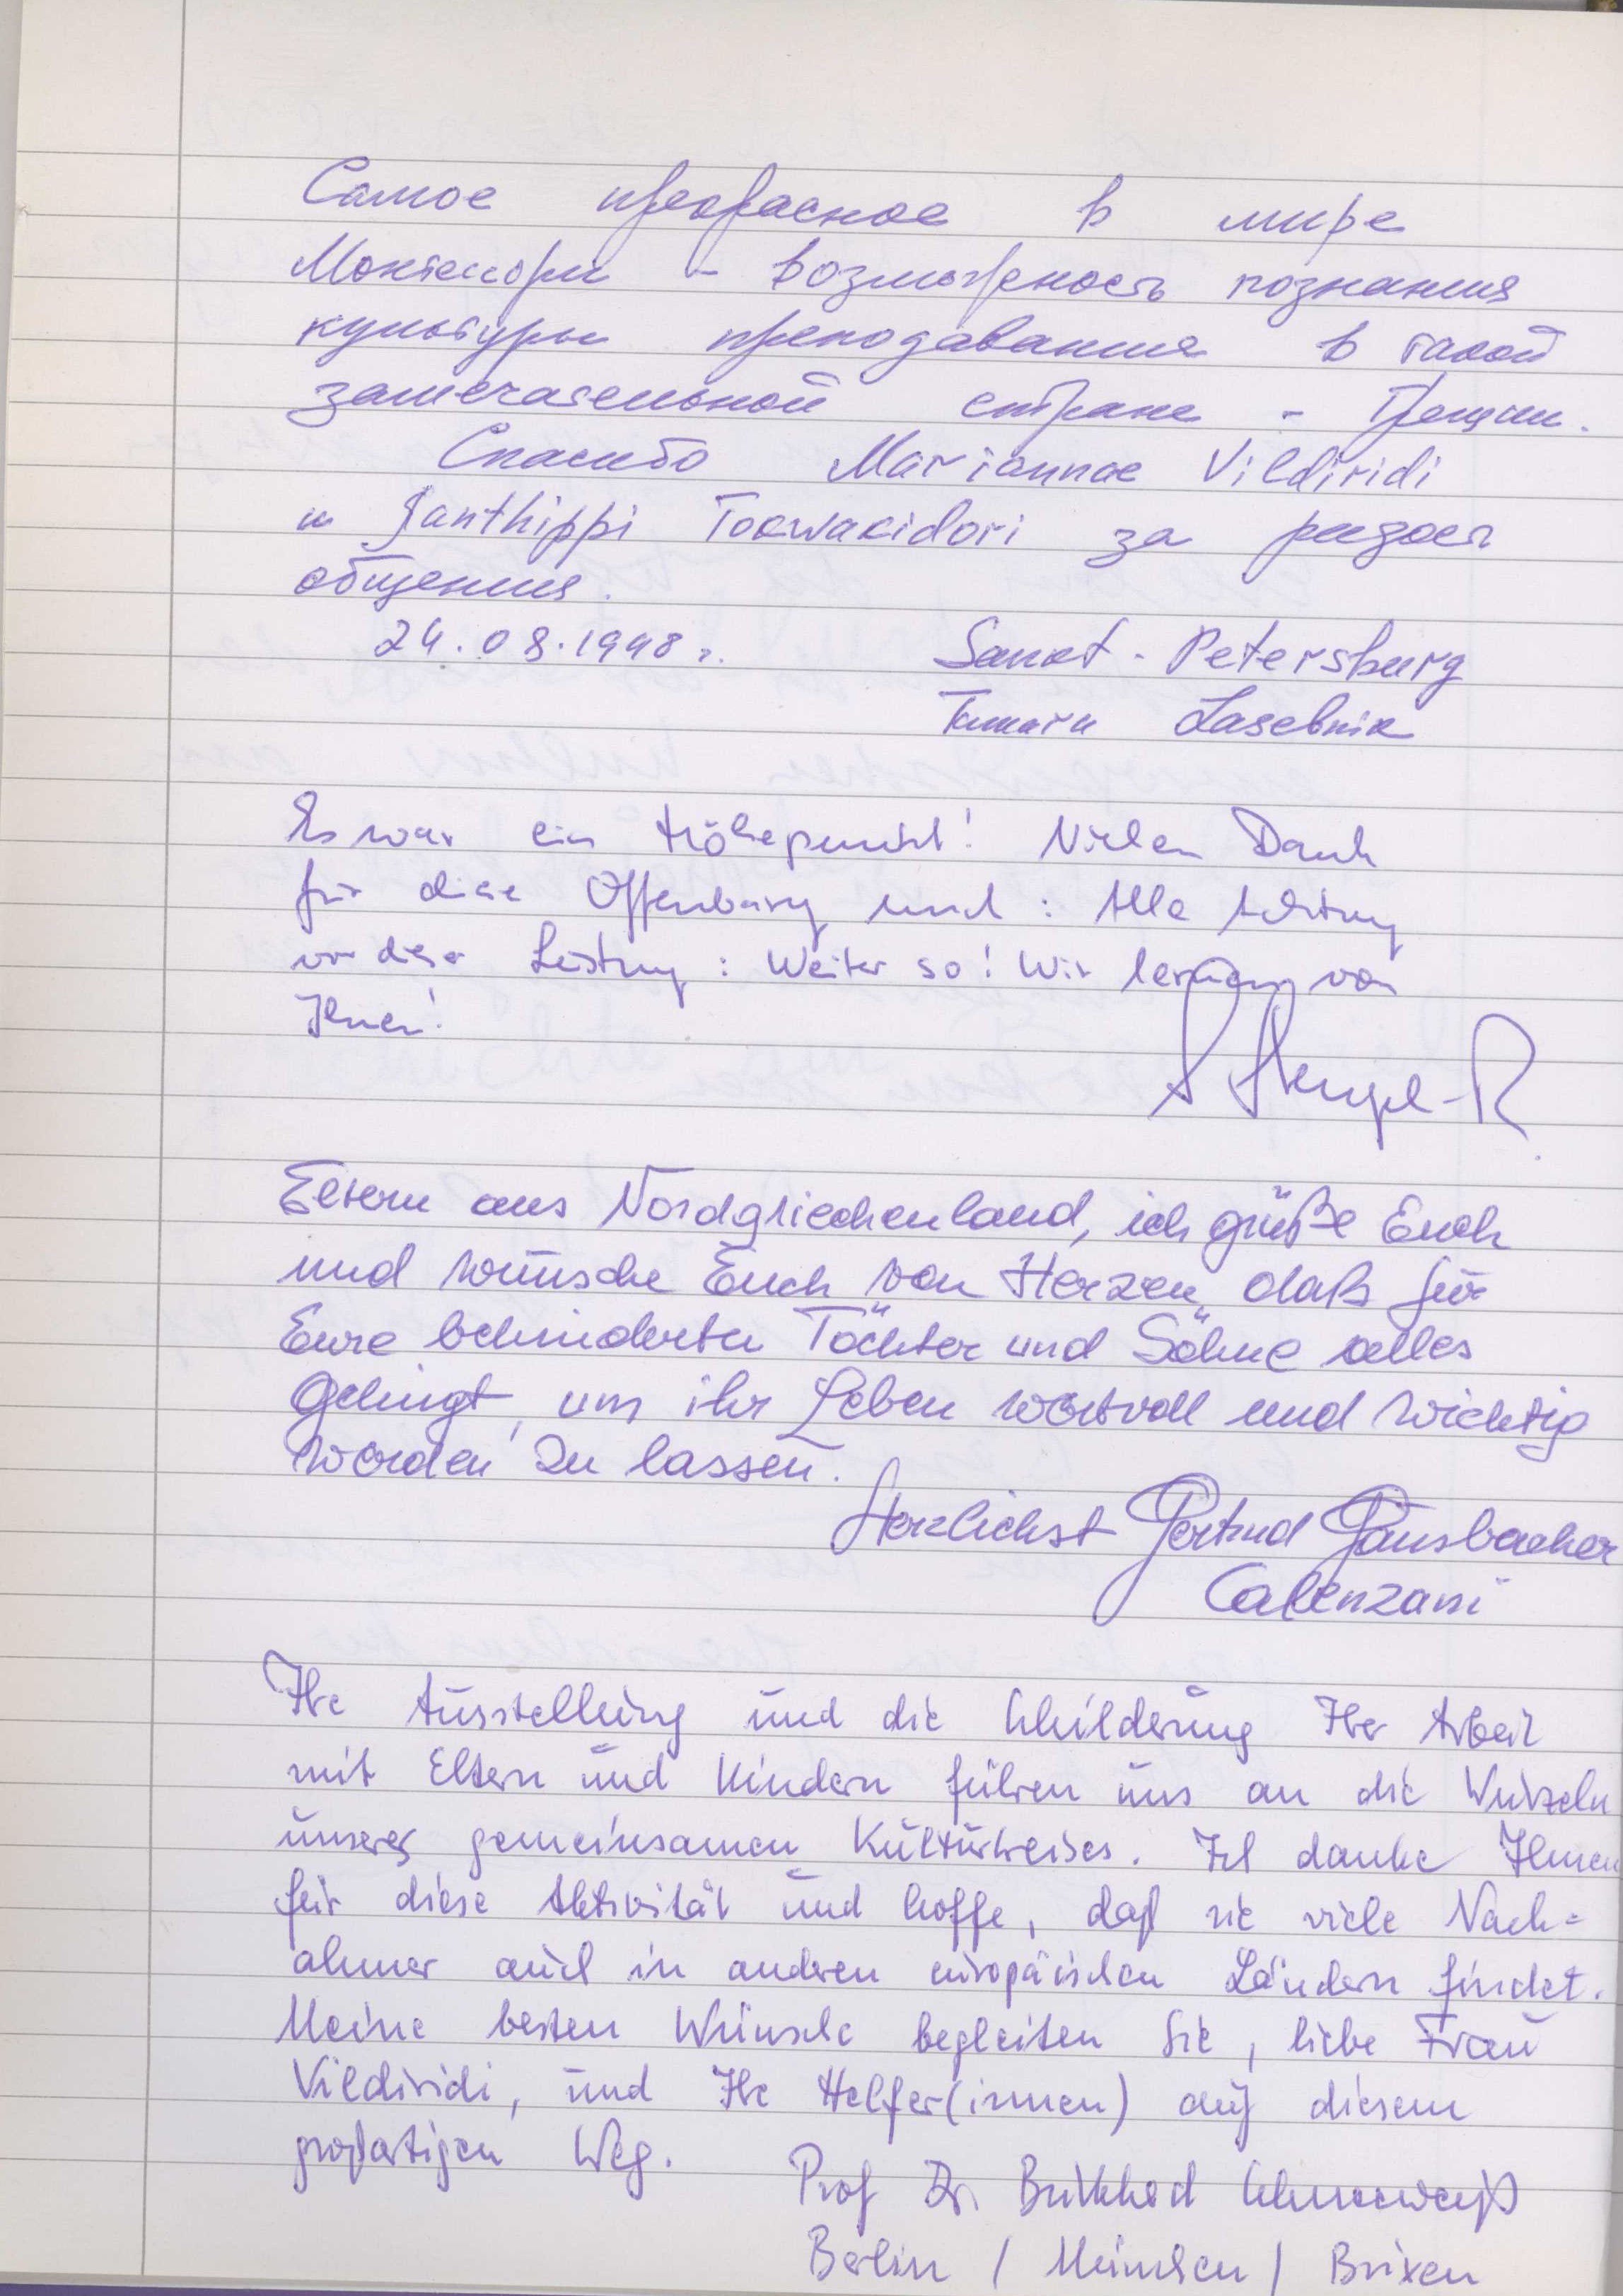 Самое прекрасное в мире
Монтессори - возможность познания
культуры преподавания в такой
замечательной стране - Греции.
Спасибо Mariannae Vildiridi
и Xanthippi за радость
общения.
24.08.1998 г.
Sankt-Petersburg
Tamara Lasebnik
Es war ein Höhepunkt! Vielen Dank
für diese Offenbarung und: Alle Achtung
vor dieser Leistung: Weiter so! Wir lernen von
Ihnen!
Eltern aus Nordgriechenland, ich grüße Euch
und wünsche Euch von Herzen, daß für
Eure behinderten Töchter und Söhne alles
gelingt, um ihr Leben wertvoll und wichtig
werden zu lassen.
Herzlichst Gertrud Gänsbacher
Calenzani
Ihre Ausstellung und die Schilderung Ihrer Arbeit
mit Eltern und Kindern führen uns an die Wurzeln
unseres gemeinsamen Kulturkreises. Ich danke Ihnen
für diese Aktivität und hoffe, daß sie viele Nach=
ahmer auch in anderen europäischen Ländern findet.
Meine besten Wünsche begleiten Sie, liebe Frau
Vildiridi, und Ihre Helfer(innen) auf diesem
großartigen Weg.
Prof Dr. Burkhard Schneeweiß
Berlin / München / Brixen